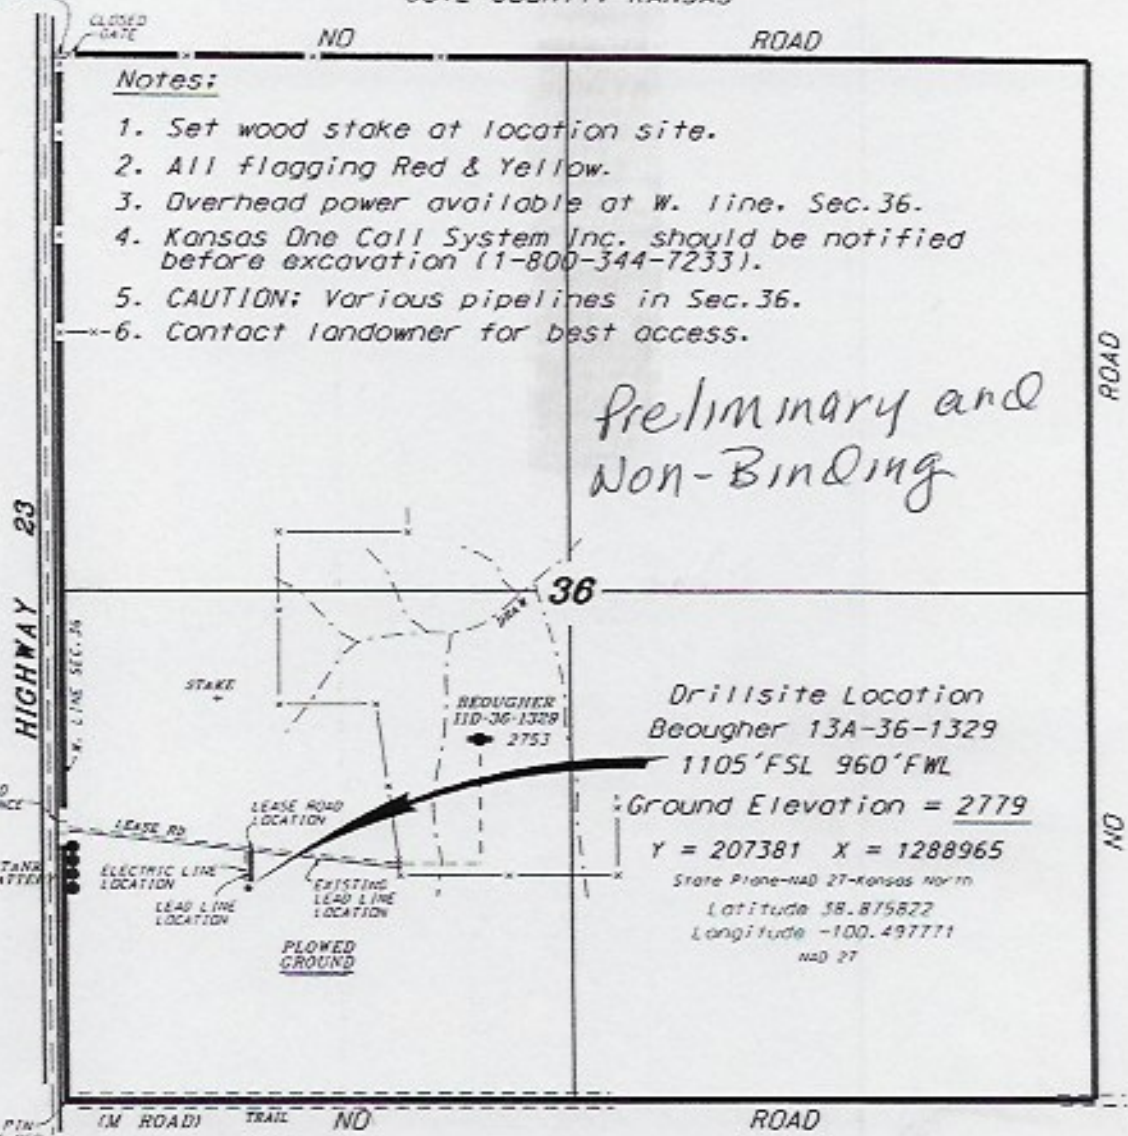 CLOSED
GATE
NO
ROAD
Notes:
1. Set wood stake at location site.
2. All flagging Red & Yellow.
3. Overhead power available at W. line. Sec.36.
4. Kansas One Call System Inc. should be notified
before excavation (1-800-344-7233).
5. CAUTION: Various pipelines in Sec.36.
6. Contact landowner for best access.
ROAD
Preliminary and
Non-Binding
HIGHWAY 23
36
DRAW
W. LINE SEC.36
STAKE
BEOUGHER
11D-36-1329
2753
Drillsite Location
Beougher 13A-36-1329
1105'FSL 960'FWL
Ground Elevation = 2779
Y = 207381 X = 1288965
State Plane-NAD 27-Kansas North
Latitude 38.875822
Longitude -100.497771
NAD 27
NO
LEASE ROAD
LOCATION
LEASE RD
TANK
ELECTRIC LINE
LOCATION
LEAD LINE
LOCATION
EXISTING
LEAD LINE
LOCATION
PLOWED
GROUND
PIN
(M ROAD)
TRAIL
NO
ROAD